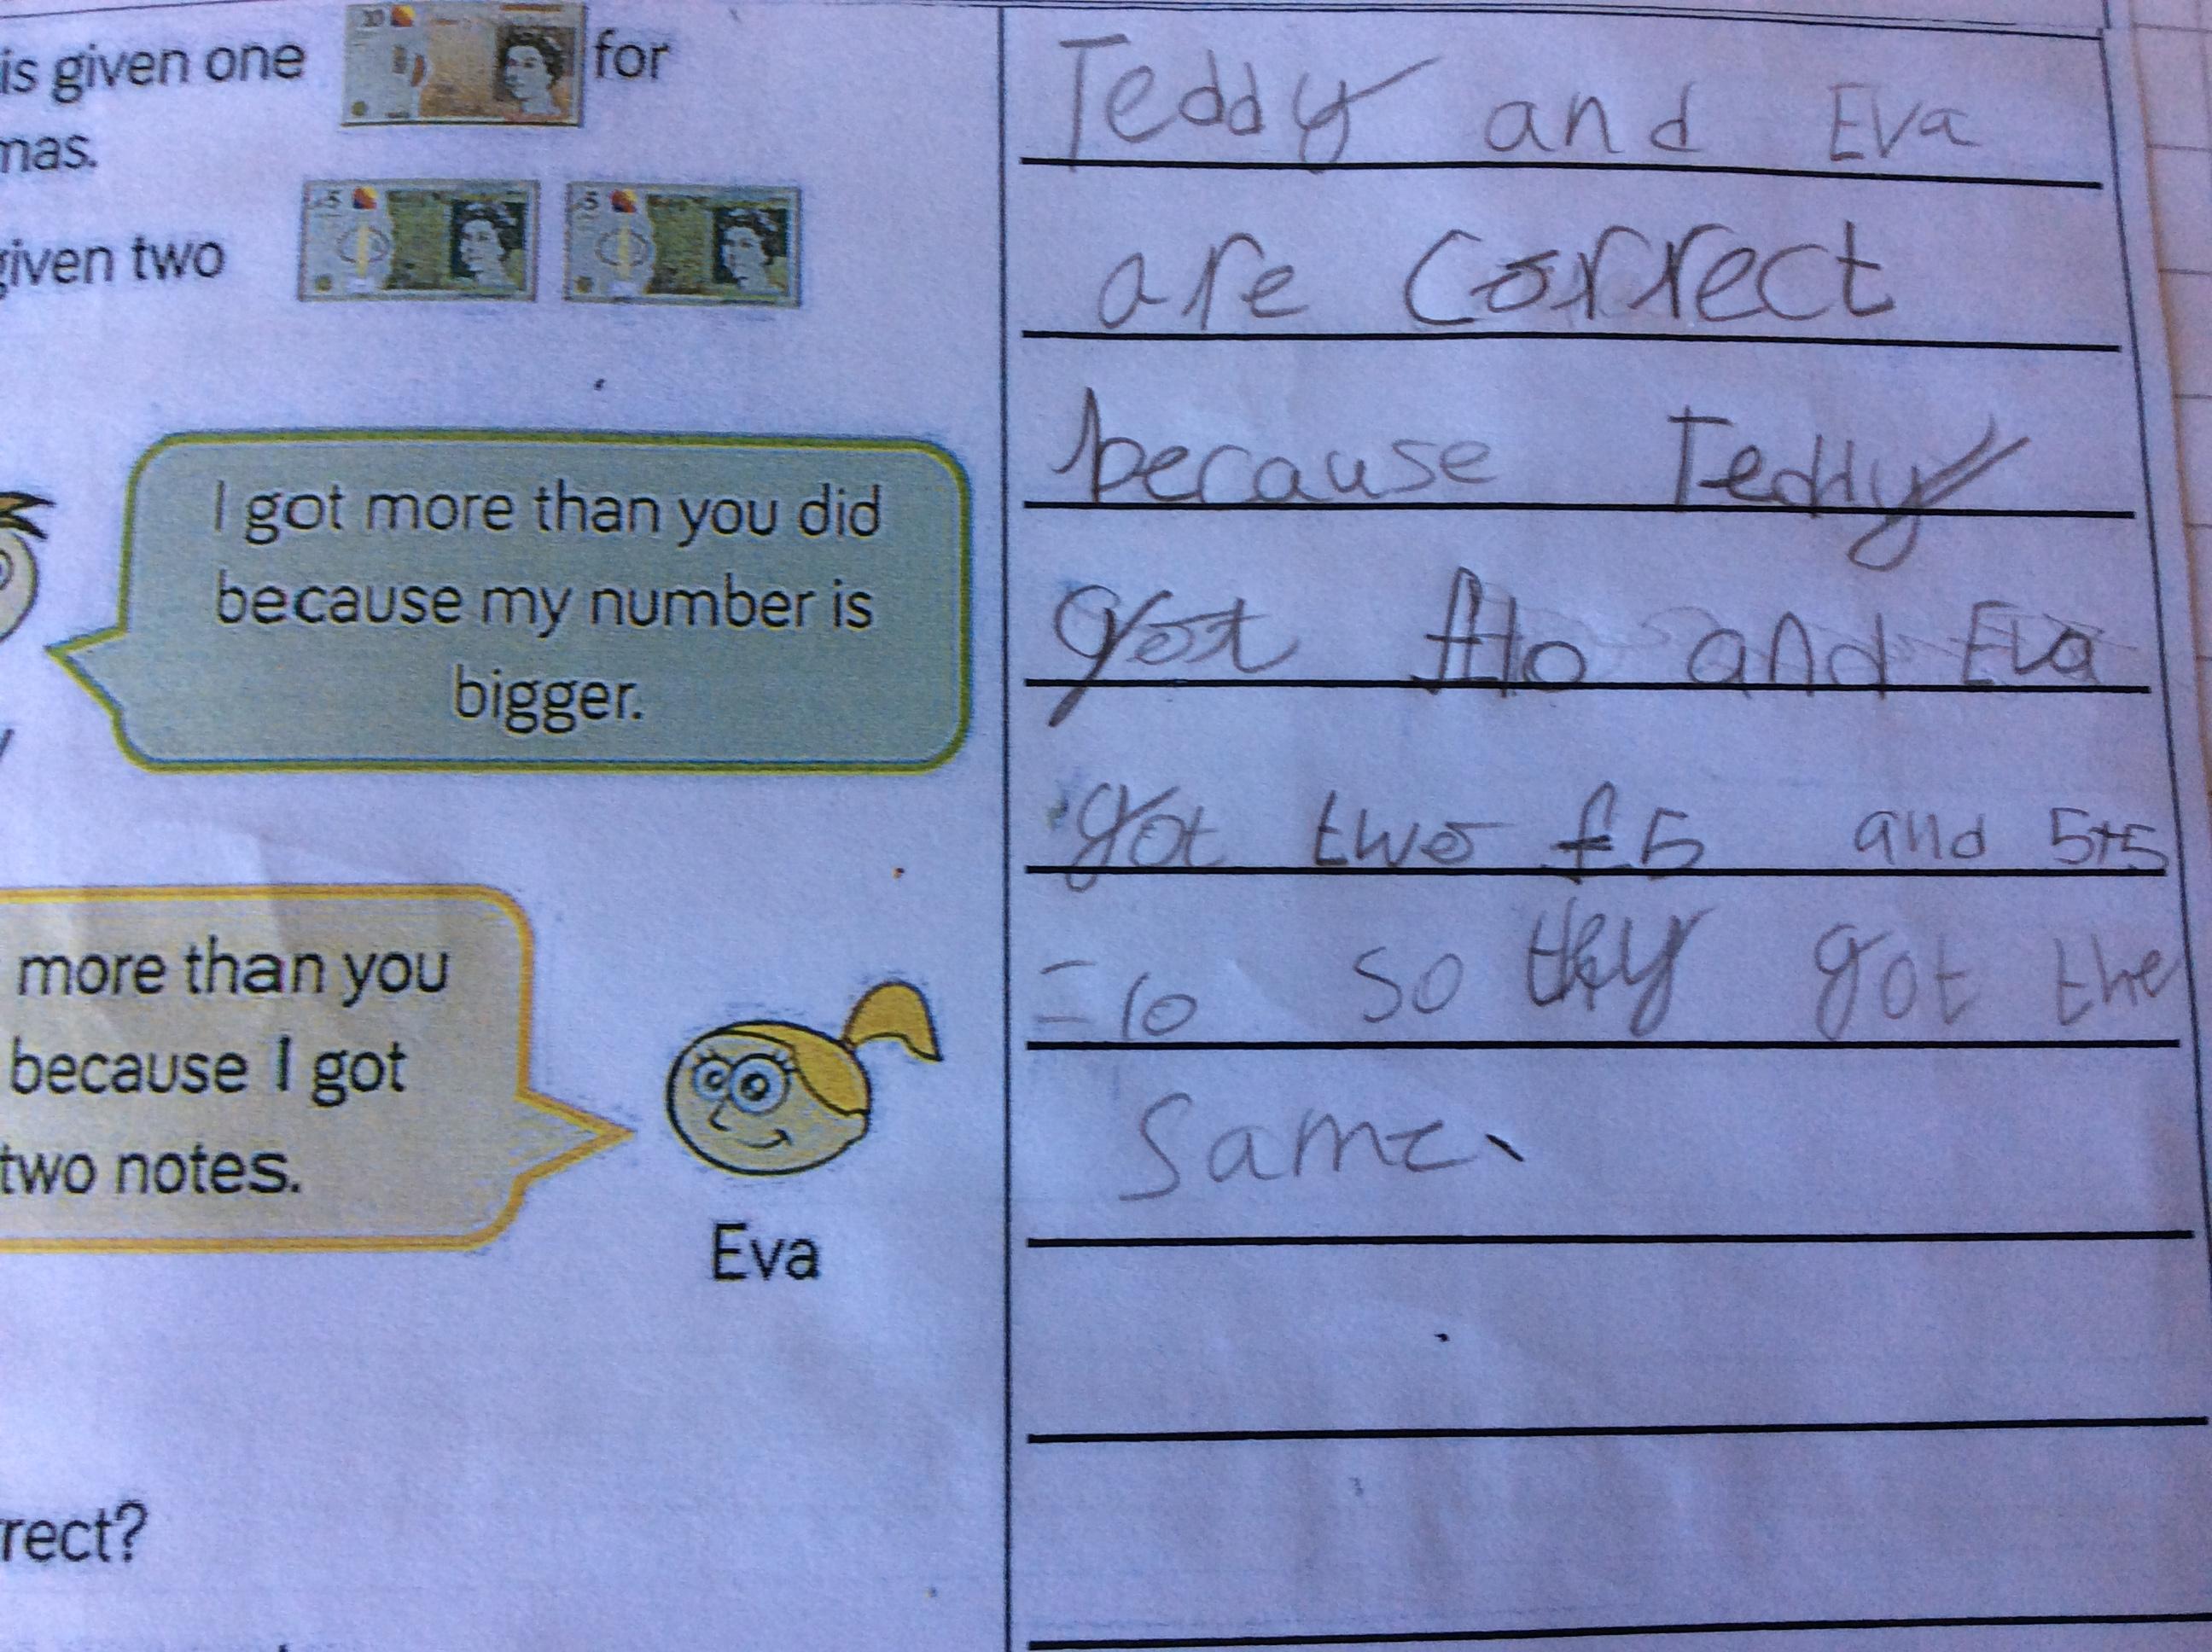 is given one for
mas.
given two
I got more than you did
because my number is
bigger.
more than you
because I got
two notes.
Eva
rrect?
Teddy and Eva
are correct
because Teddy
got £10 and Eva
got two £5 and 5+5
=10 so they got the
Same.